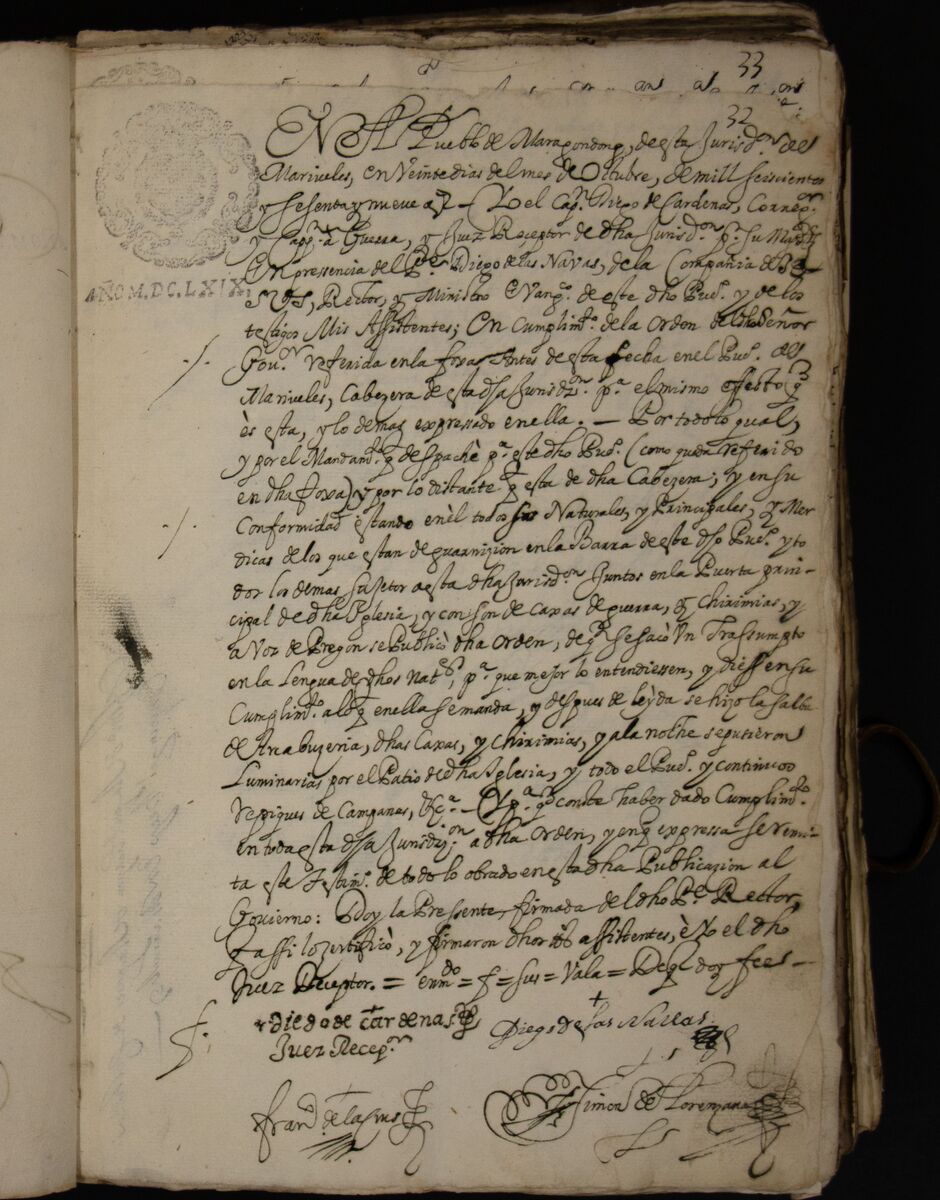 33
32
EN El Pueblo de Maragondong, de esta Jurisd.on del
Mariueles, en Veinte dias del mes de Octubre, de mill seiscientos
y sesenta y nueve a.s — Yo el Cap.n Diego de Cardenas, Correg.or
y Capp.n a Guerra, y Juez Receptor de dha Jurisd.on p.r su Mag.d
En pressencia del P.e Diego de las Navas, de la Compañia de
AÑO M.DC.LXIX.
Rector, y Ministro Evang.o de este dho Pue.o y de los
testigos Mis Assistentes; En Cumplim.to de la orden del dho Señor
Gou.or referida en la foxa Antes de esta fecha en el Pue.o del
Mariueles, Cabezera de esta dha Jurisdz.on p.a el mismo effecto q
ès esta, y lo demas expressado en ella. — Por todo lo qual,
y por el Mandam.to q despachè p.a este dho Pue.o (como queda referido
en dha foxa) y por lo distante q esta de dha Cabezera; y en su
Conformidad estando en èl todos sus Naturales, y Principales, y Mer
dicas de los que estan de guarnizion en la Barra de este dho Pue.o y to
dos los demas sujetos a esta dha Jurisd.on Juntos en la Puerta prin-
cipal de dha Iglesia, y con son de caxas de guerra, y chirimias, y
a Voz de Pregon se Publicò dha orden, de q se sacò Un Trassumpto
en la Lengua de dhos Nat.es, p.a que mejor lo entendiessen, y diessen su
Cumplim.to a lo q en ella se manda, y despues de leyda se hizo la salba
de Arcabuzeria, dhas Caxas, y chirimias, y a la noche se pusieron
Luminarias por el Patio de dha Iglesia, y todo el Pue.o y continuos
repiques de Campanas, &c.a — Y p.a q conste haber dado Cumplim.to
en toda esta dha Jurisdiz.on a dha orden, y en q expressa se remi-
ta este Testim.o de todo lo obrado en esta dha Publicazion al
Gouierno: Doy la Pressente, firmada del dho P.e Rector,
q assi lo zertificò, y firmaron dhos tt.os assistentes, è Yo el dho
Juez Receptor. = enm.do = f = sus = Vala = De q doy fee —
Diego de Cardenas
Diego de las Nauas
Juez Recep.or
fran.co de la crus
Simon de